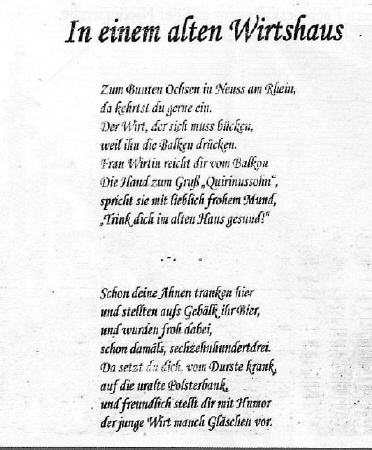 In einem alten Wirtshaus
Zum Bunten Ochsen in Neuss am Rhein,
da kehrtst du gerne ein.
Der Wirt, der sich muss bücken,
weil ihn die Balken drücken.
Frau Wirtin reicht dir vom Balkon
Die Hand zum Gruß „Quirinussohn",
spricht sie mit lieblich frohem Mund,
„Trink dich im alten Haus gesund!"
Schon deine Ahnen tranken hier
und stellten aufs Gebälk ihr Bier,
und wurden froh dabei,
schon damals, sechzehnhundertdrei.
Da setzt du dich, vom Durste krank,
auf die uralte Polsterbank,
und freundlich stellt dir mit Humor
der junge Wirt manch Gläschen vor.